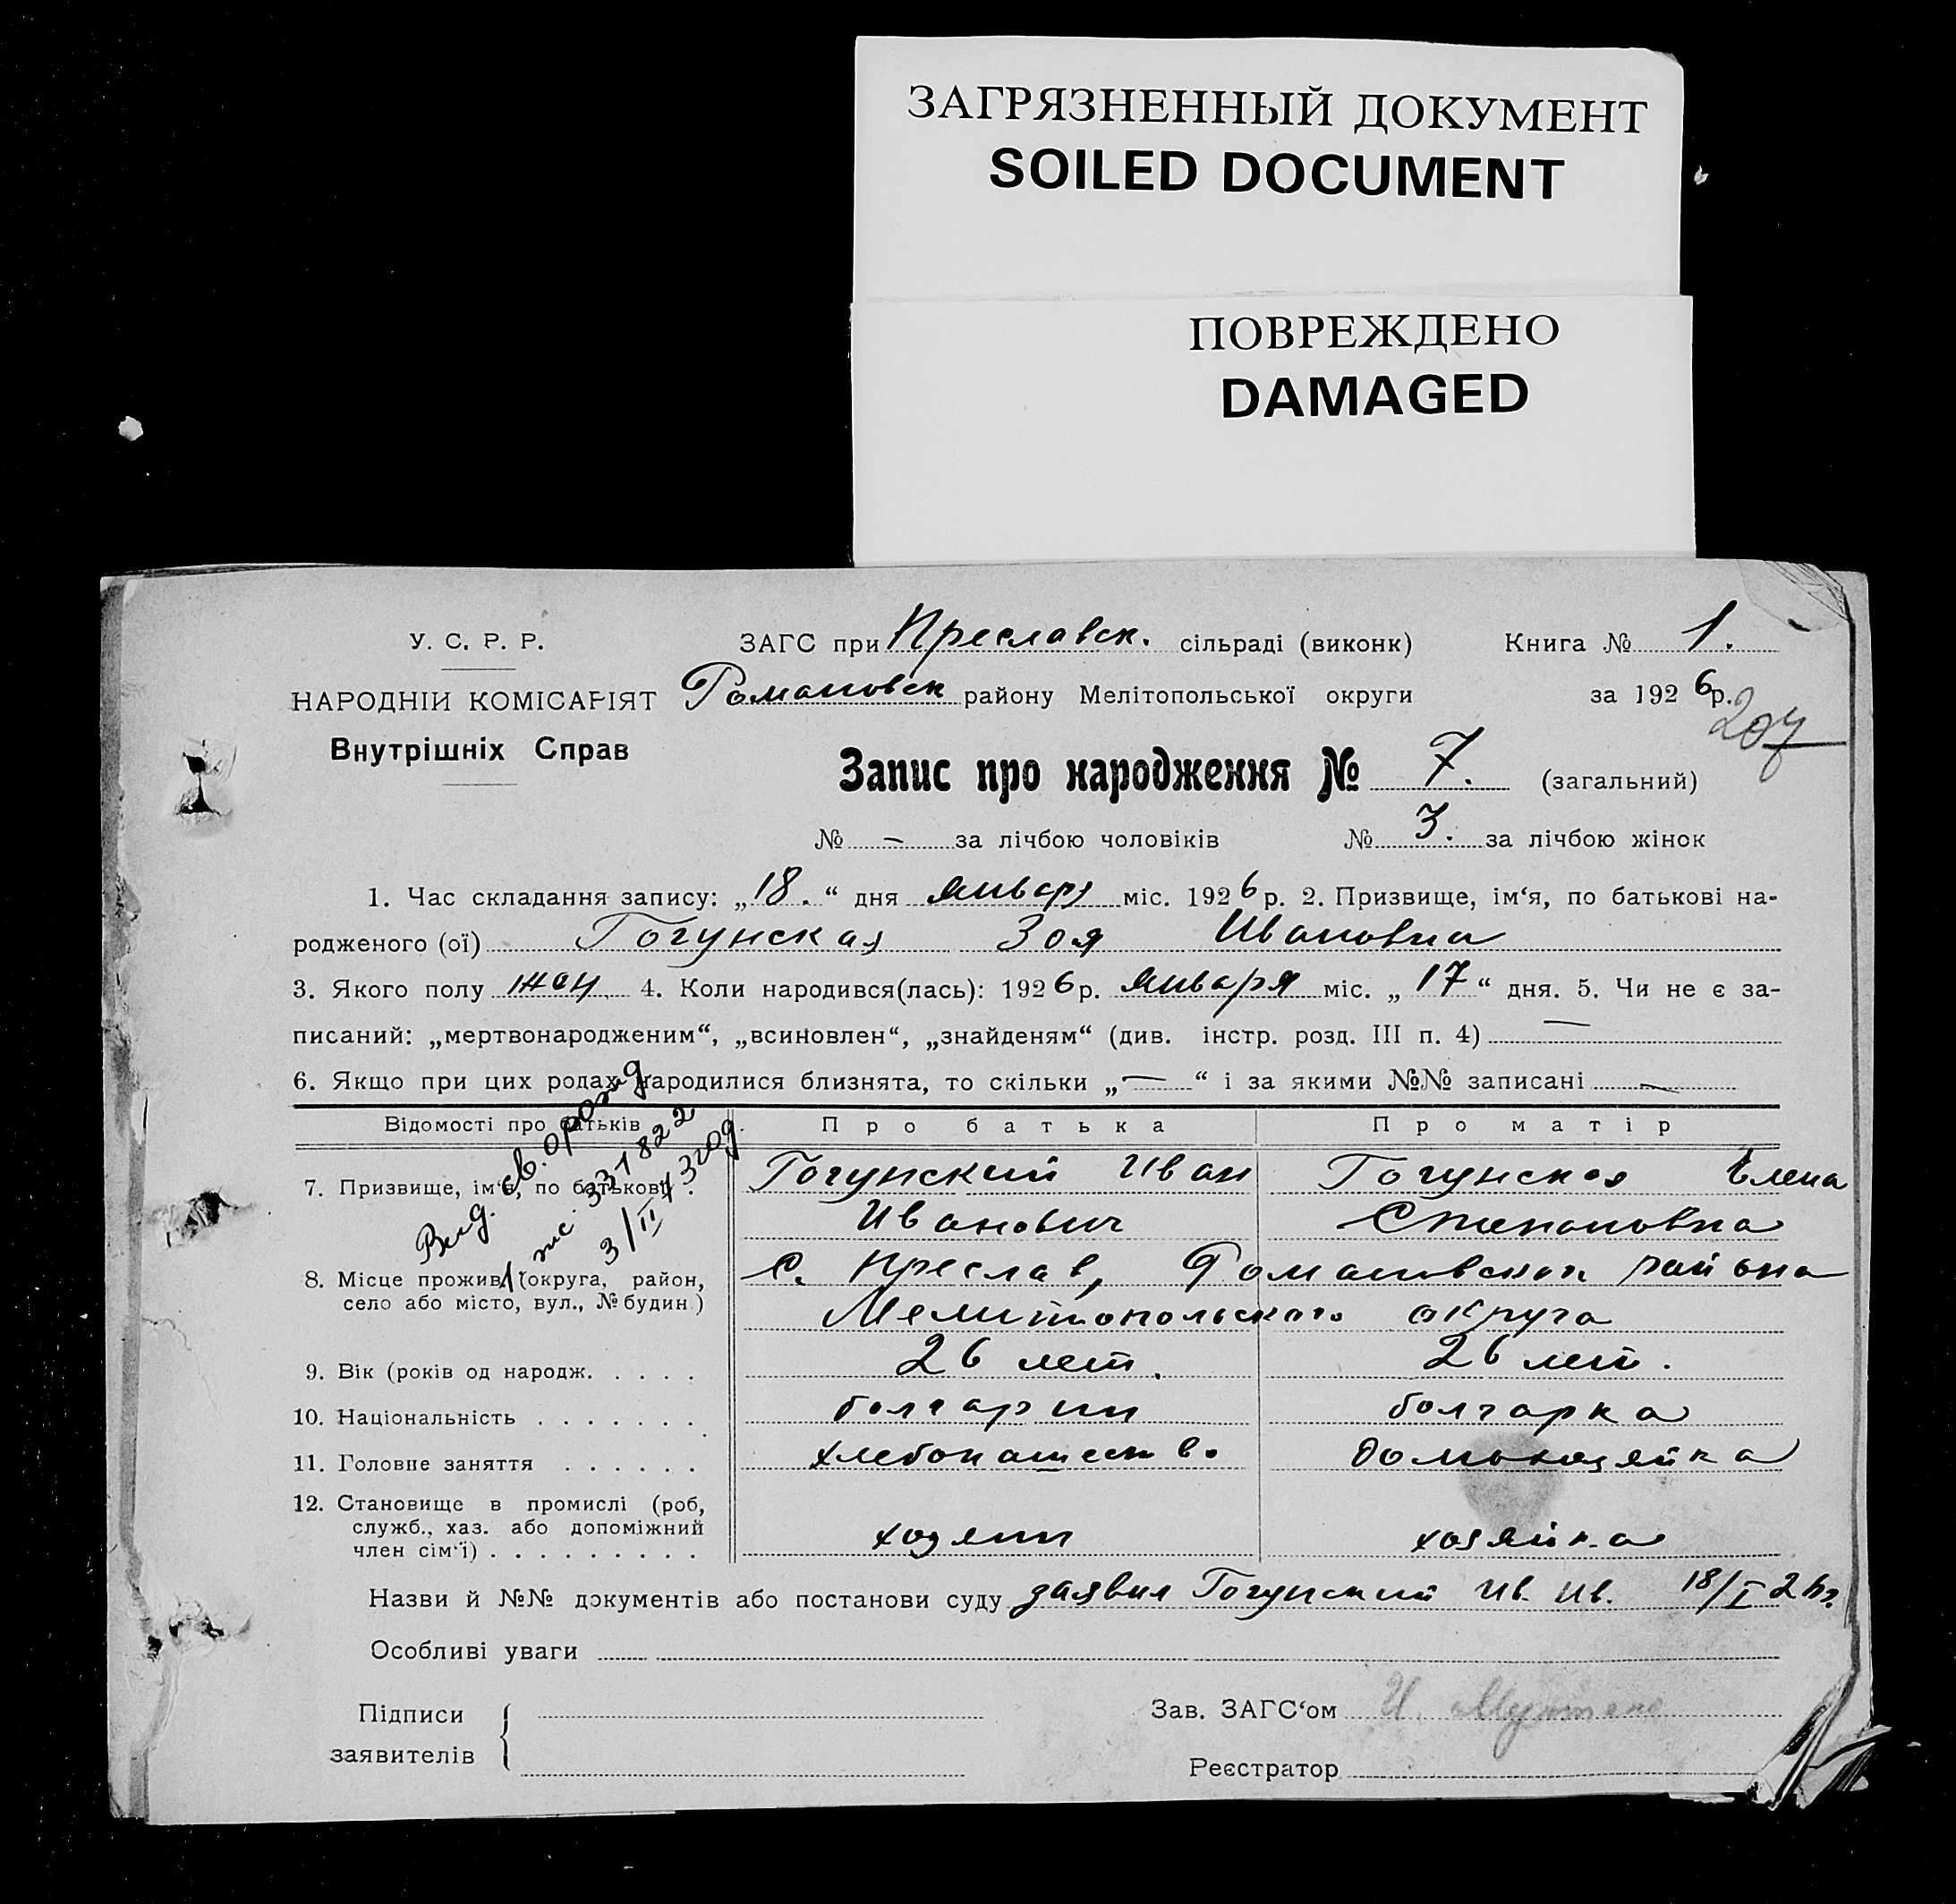 ЗАГРЯЗНЕННЫЙ ДОКУМЕНТ
SOILED DOCUMENT
ПОВРЕЖДЕНО
DAMAGED
У. С. Р. Р.
ЗАГС при Преславск. сільраді (виконк) Книга № 1.
НАРОДНІЙ КОМІСАРІЯТ Романовск району Мелітопольської округи за 1926 р.
207
Внутрішніх Справ
Запис про народження № 7. (загальний)
№ — за лічбою чоловіків № 3. за лічбою жінок
1. Час складання запису: „18.“ дня января міс. 1926 р. 2. Призвище, ім‘я, по батькові на-
родженого (ої) Гогунская Зоя Ивановна
3. Якого полу жен 4. Коли народився(лась): 1926 р. января міс. „17“ дня. 5. Чи не є за-
писаний: „мертвонародженим“, „всиновлен“, „знайденям“ (див. інстр. розд. III п. 4) —
6. Якщо при цих родах народилися близнята, то скільки „—“ і за якими №№ записані —
Відомості про батьків Про батька Про матір
Выд. св. о рожд.
331822
3/II 43 год
7. Призвище, ім‘я, по батькові . Гогунский Иван Гогунская Елена
Иванович Степановна
8. Місце прожив. (округа, район, с. Преслав, Романовского района
село або місто, вул., № будин.) Мелитопольского округа
9. Вік (років од народж. . . . . 26 лет. 26 лет.
10. Національність . . . . . . . болгарин болгарка
11. Головне заняття . . . . . . хлебопашество домохозяйка
12. Становище в промислі (роб,
служб., хаз. або допоміжний
член сім‘ї) . . . . . . . . . хозяин хозяйка
Назви й №№ документів або постанови суду заявил Гогунский Ив. Ив. 18/I 26г.
Особливі уваги
Підписи
заявителів
Зав. ЗАГС‘ом И.
Реєстратор